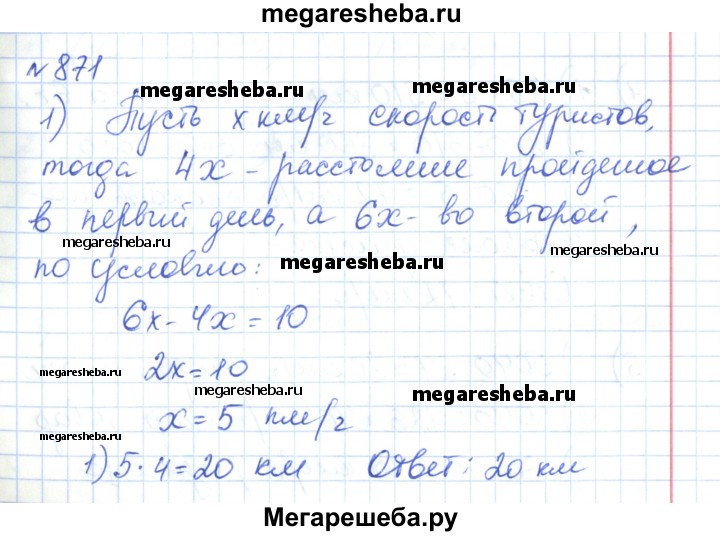 megaresheba.ru
№ 871
megaresheba.ru megaresheba.ru
1) Пусть x км/ч скорость туристов,
тогда 4x - расстояние пройденое
в первый день, а 6x - во второй,
megaresheba.ru megaresheba.ru
по условию: megaresheba.ru
6x - 4x = 10
2x = 10
megaresheba.ru megaresheba.ru megaresheba.ru
x = 5 км/ч
megaresheba.ru
1) 5 · 4 = 20 км Ответ: 20 км
Мегарешеба.ру